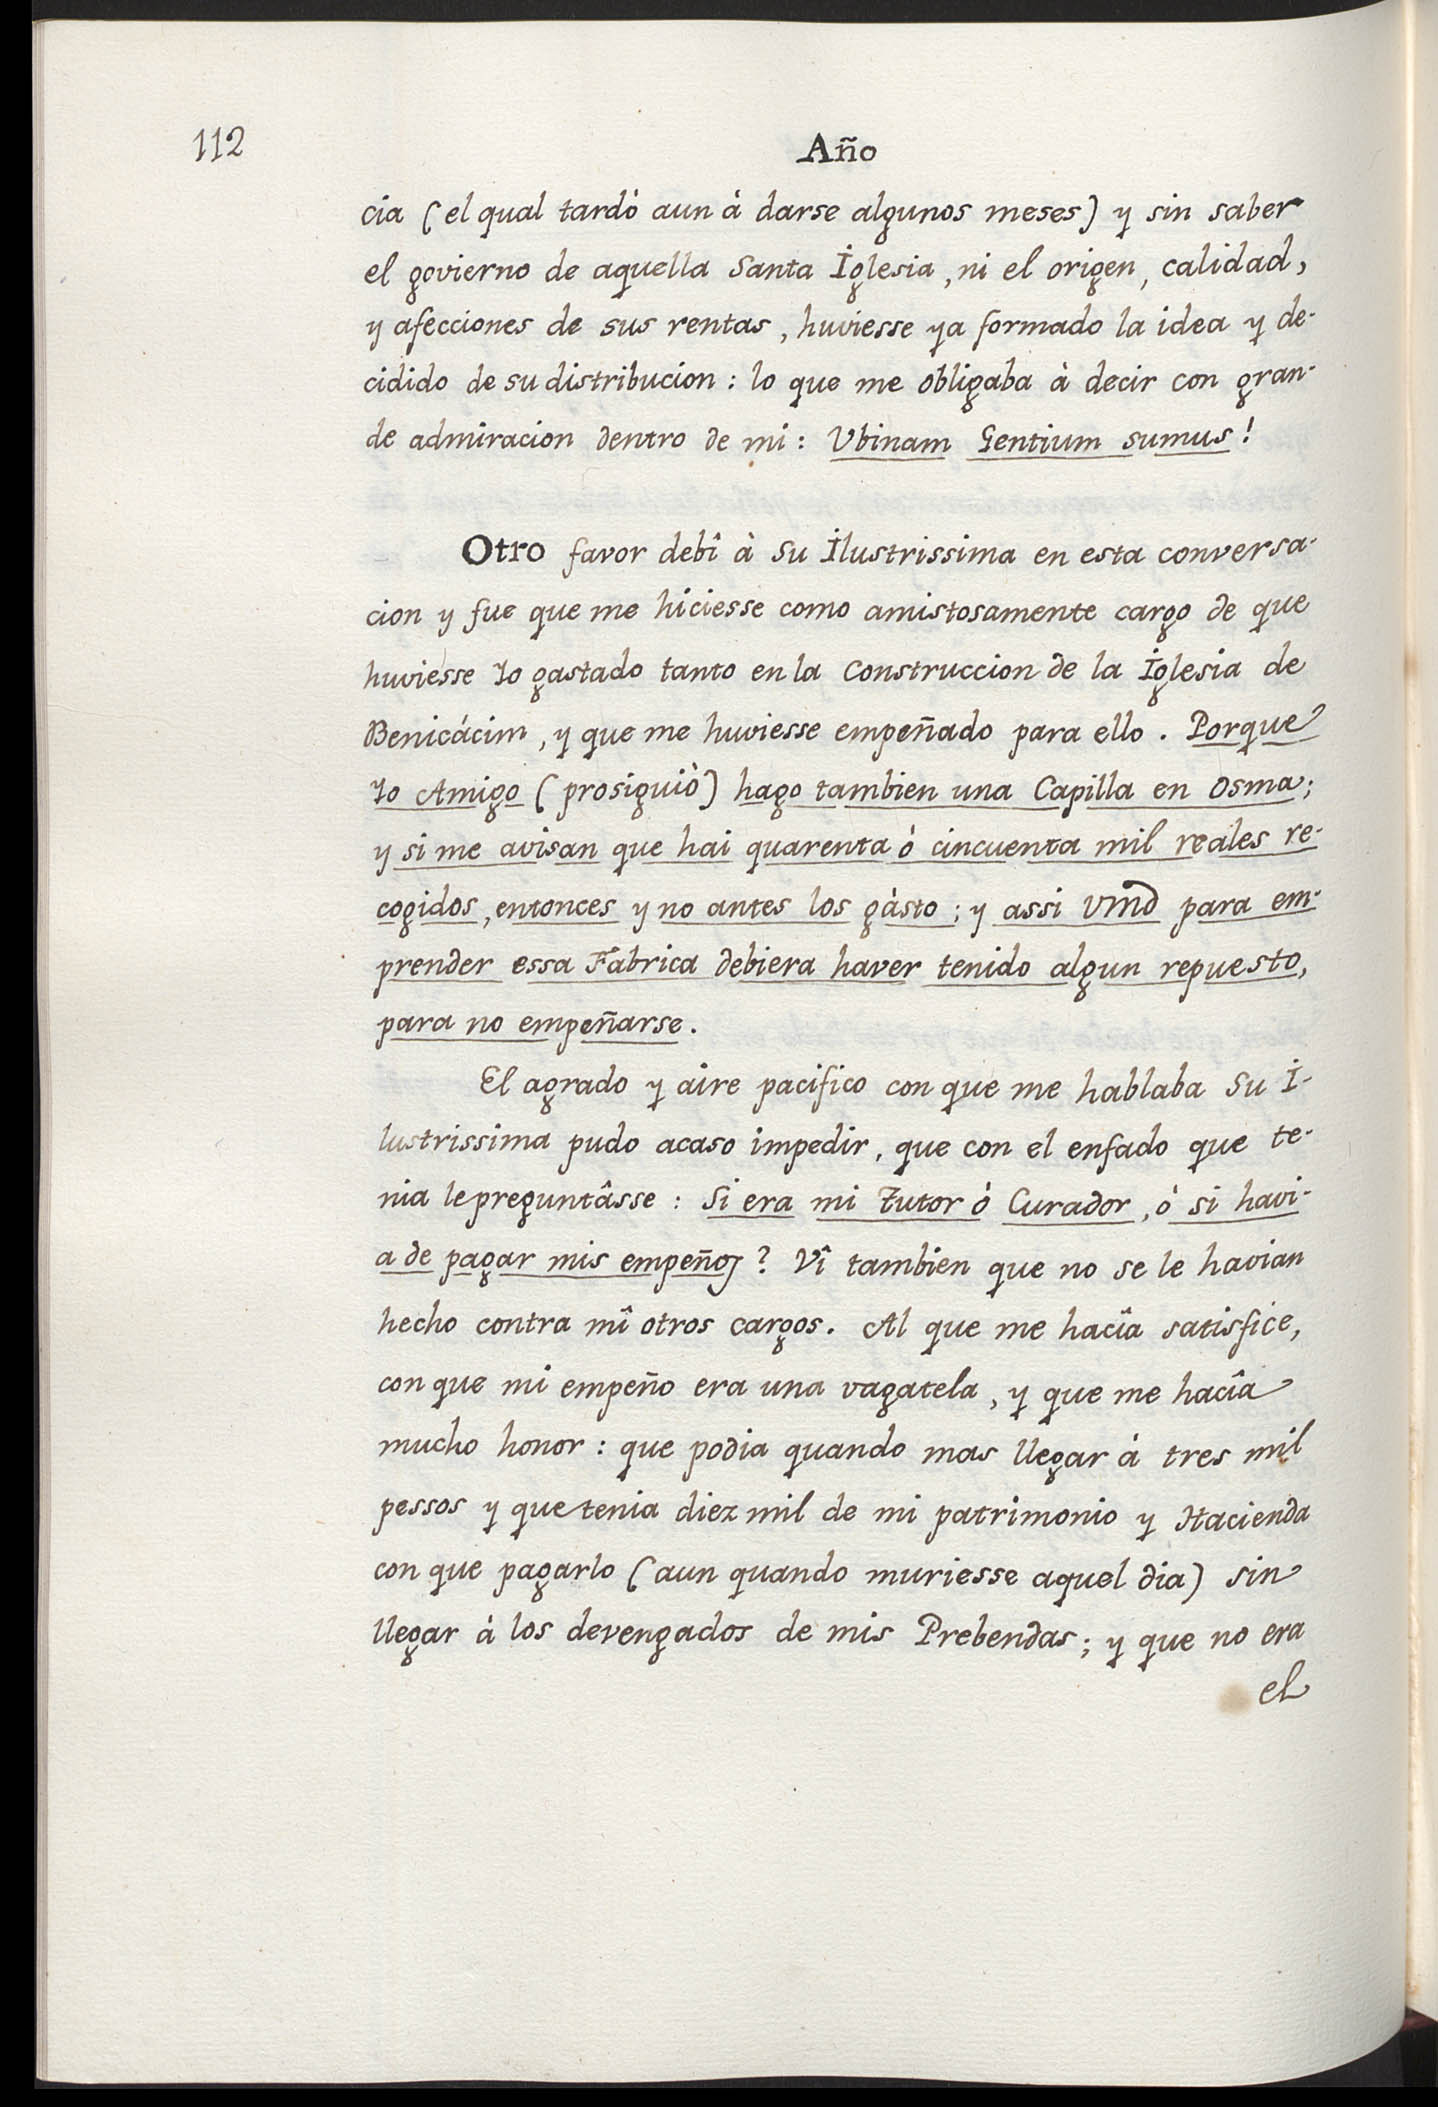 112
Año
cia (el qual tardò aun à darse algunos meses) y sin saber
el govierno de aquella Santa Iglesia, ni el origen, calidad,
y afecciones de sus rentas, huviesse ya formado la idea y de-
cidido de su distribucion: lo que me obligaba à decir con gran-
de admiracion dentro de mi: Ubinam Gentium sumus!
Otro favor debî à Su Ilustrissima en esta conversa-
cion y fue que me hiciesse como amistosamente cargo de que
huviesse Yo gastado tanto en la Construccion de la Iglesia de
Benicácim, y que me huviesse empeñado para ello. Porque
Yo Amigo (prosiguiò) hago tambien una Capilla en Osma;
y si me avisan que hai quarenta ò cincuenta mil reales re-
cogidos, entonces y no antes los gàsto; y assi Vmd para em-
prender essa Fabrica debiera haver tenido algun repuesto,
para no empeñarse.
El agrado y aire pacifico con que me hablaba Su I-
lustrissima pudo acaso impedir, que con el enfado que te-
nia le preguntâsse: Si era mi Tutor ò Curador, ò si havi-
a de pagar mis empeños? Vî tambien que no se le havian
hecho contra mî otros cargos. Al que me hacîa satisfice,
con que mi empeño era una vagatela, y que me hacîa
mucho honor: que podia quando mas llegar à tres mil
pessos y que tenia diez mil de mi patrimonio y Hacienda
con que pagarlo (aun quando muriesse aquel dia) sin
llegar à los devengados de mis Prebendas; y que no era
el